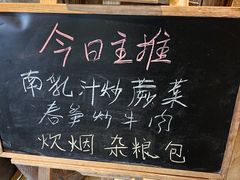 今日主推
南乳汁炒蕨菜
春笋炒牛肉
炊烟杂粮包